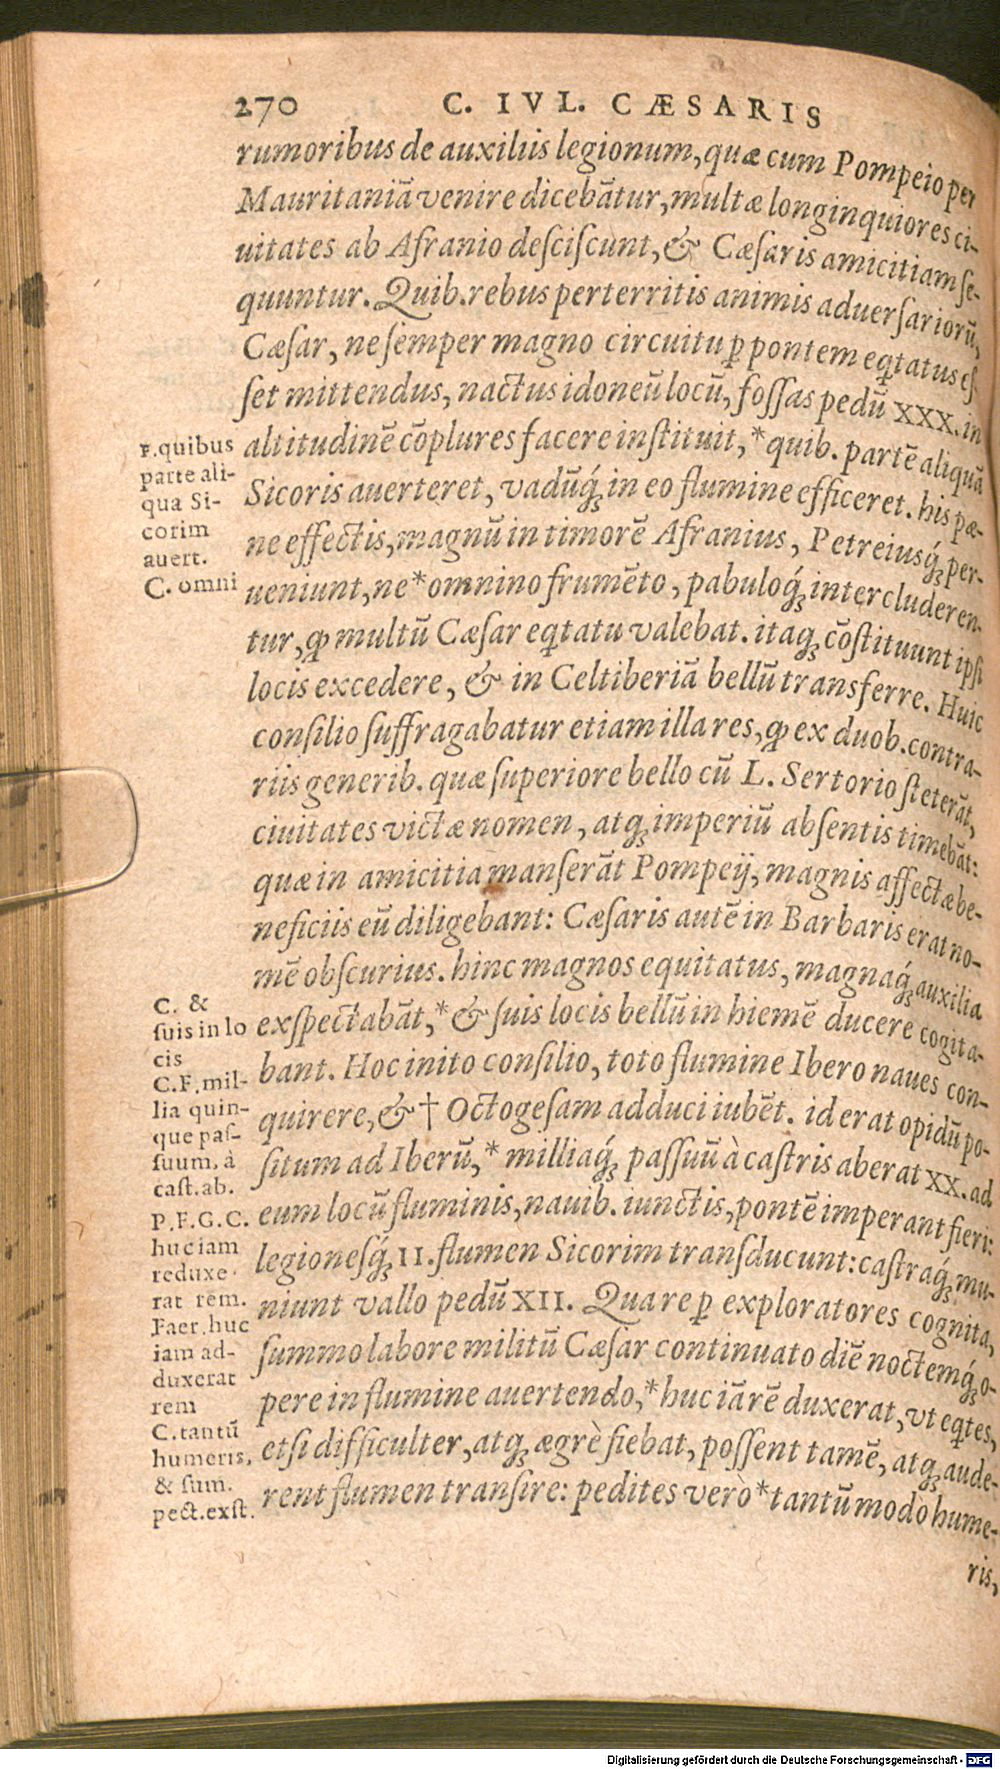 270 C. IVL. CÆSARIS
rumoribus de auxiliis legionum, quæ cum Pompeio per
Mauritaniā venire dicebātur, multæ longinquiores ci-
uitates ab Afranio desciscunt, & Cæsaris amicitiam se-
quuntur. Quib. rebus perterritis animis aduersariorū,
Cæsar, ne semper magno circuitu ꝑ pontem eq̃tatus es
set mittendus, nactus idoneū locū, fossas pedū XXX. in
altitudinē cōplures facere instituit, * quib. partē aliquā
Sicoris auerteret, vadūq́ꝫ in eo flumine efficeret. his pæ-
ne effectis, magnū in timorē Afranius, Petreiusq́ꝫ per-
ueniunt, ne * omnino frumēto, pabuloq́ꝫ intercluderen-
tur, ꝙ multū Cæsar eq̃tatu valebat. itaqꝫ cōstituunt ipsi
locis excedere, & in Celtiberiā bellū transferre. Huic
consilio suffragabatur etiam illa res, ꝙ ex duob. contra-
riis generib. quæ superiore bello cū L. Sertorio steterāt,
ciuitates victæ nomen, atqꝫ imperiū absentis timebāt:
quæ in amicitia manserāt Pompeij, magnis affectæ be-
neficiis eū diligebant: Cæsaris autē in Barbaris erat no-
mē obscurius. hinc magnos equitatus, magnaq́ꝫ auxilia
exspectabāt, * & suis locis bellū in hiemē ducere cogita-
bant. Hoc inito consilio, toto flumine Ibero naues con-
quirere, & † Octogesam adduci iubēt. id erat opidū po-
situm ad Iberū, * milliaq́ꝫ passuū à castris aberat XX. ad
eum locū fluminis, nauib. iunctis, pontē imperant fieri:
legionesq́ꝫ II. flumen Sicorim transducunt: castraq́ꝫ mu-
niunt vallo pedū XII. Qua re ꝑ exploratores cognita,
summo labore militū Cæsar continuato diē noctemq́ꝫ o-
pere in flumine auertendo, * huc iā rē duxerat, vt eq̃tes,
etsi difficulter, atqꝫ ægrè fiebat, possent tamē, atqꝫ aude-
rent flumen transire: pedites verò * tantūmodo hume-
ris,
F. quibus
parte ali-
qua Si-
corim
auert.
C. omni
C. &
suis in lo
cis
C.F. mil-
lia quin-
que pas-
suum, à
cast. ab.
P.F.G.C.
huc iam
reduxe
rat rem.
Faer. huc
iam ad-
duxerat
rem
C. tantū
humeris,
& sum.
pect. exst.
Digitalisierung gefördert durch die Deutsche Forschungsgemeinschaft - DFG